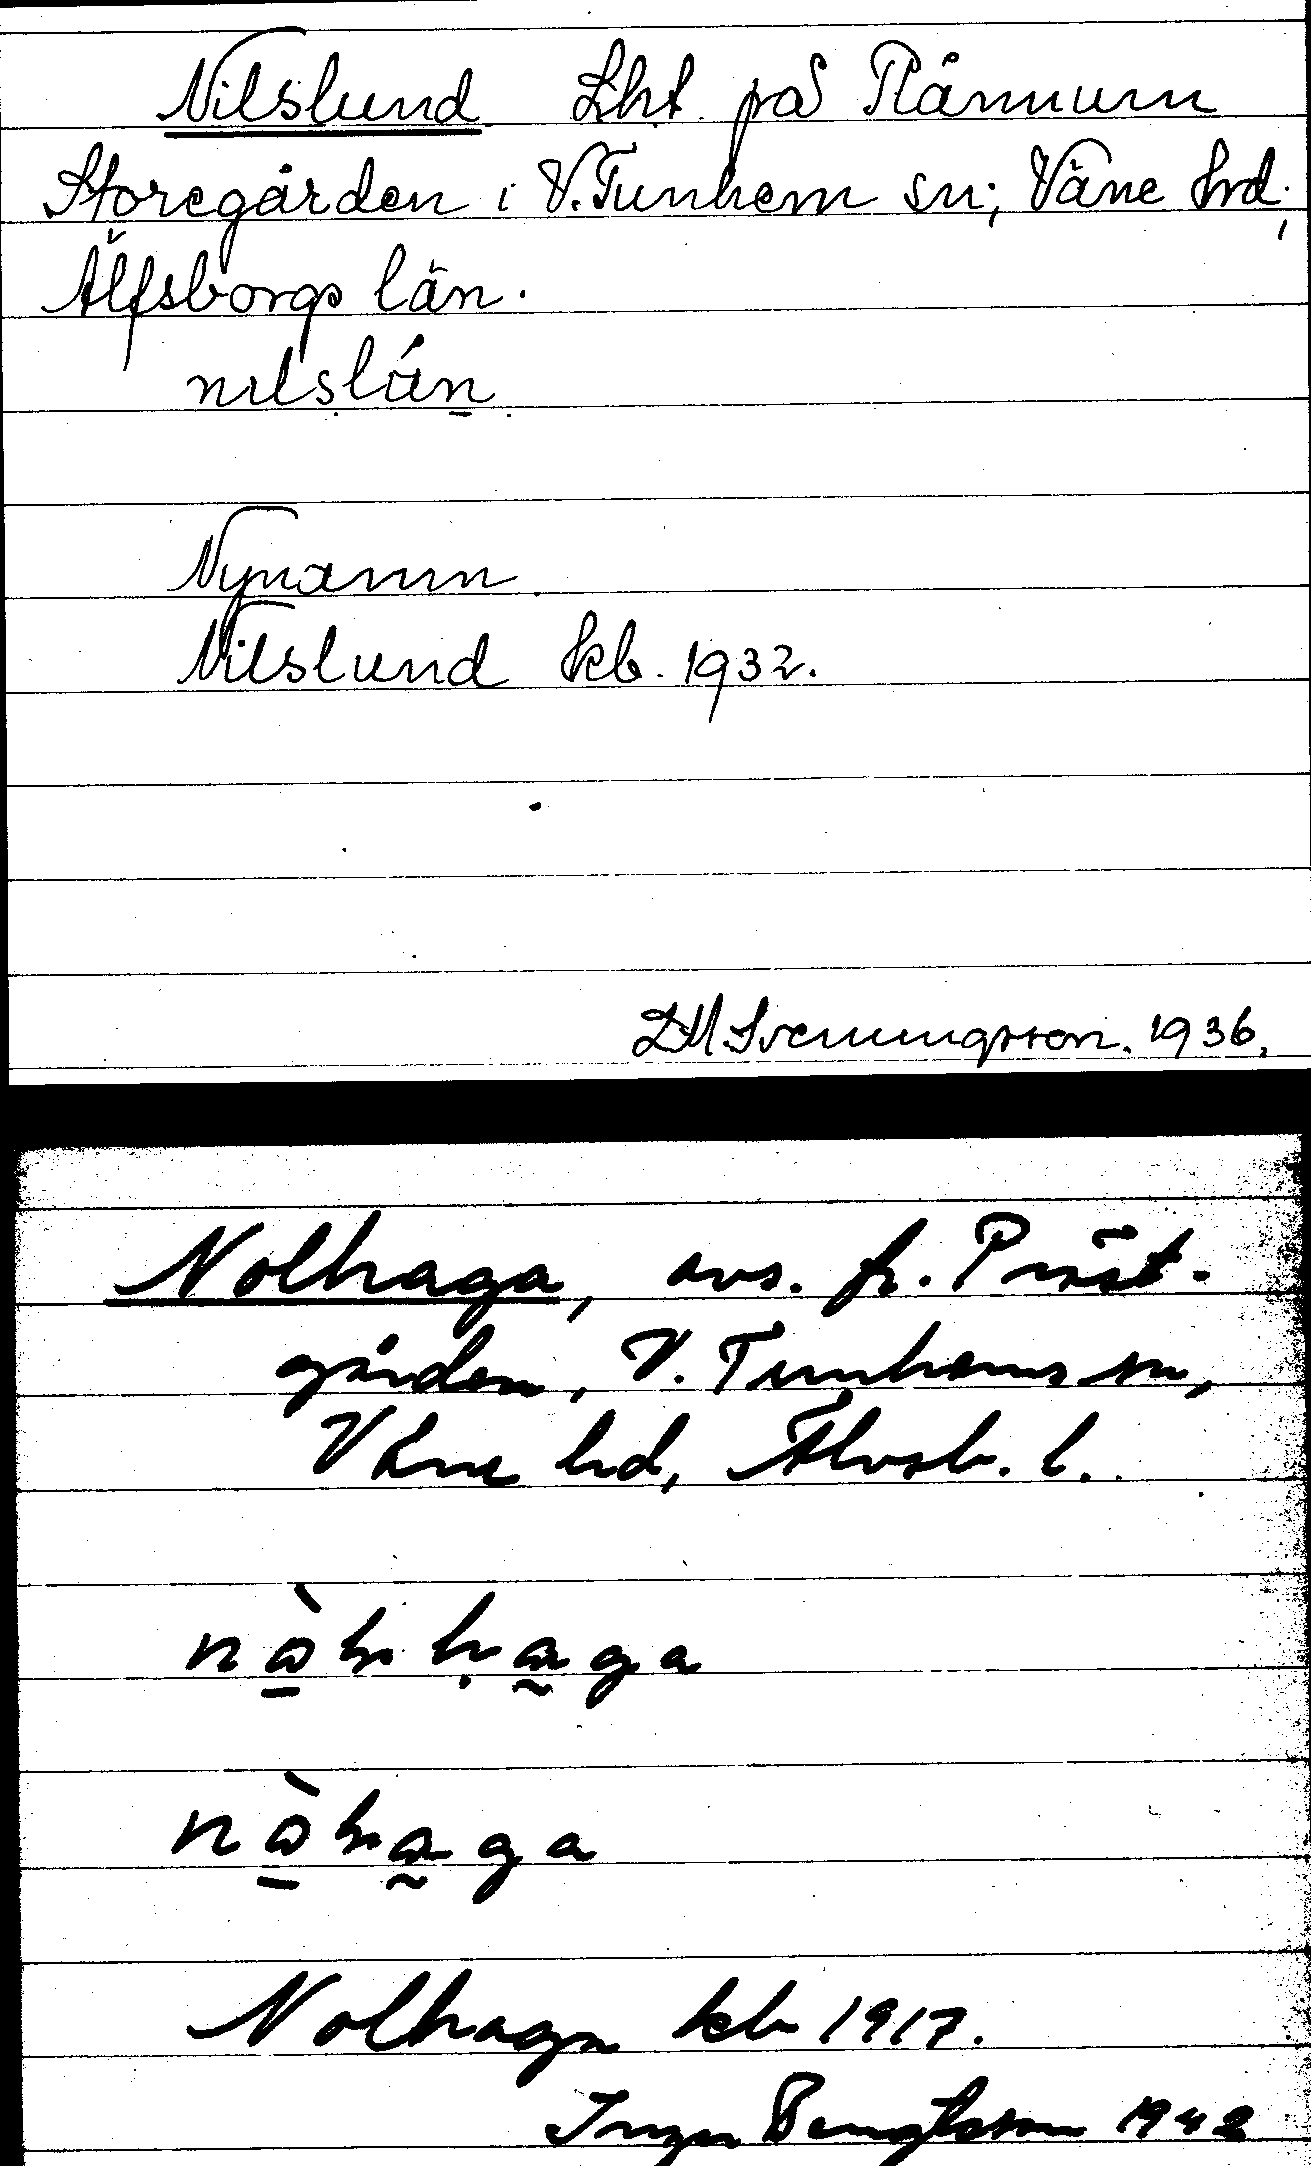 Nilslund Lht på Rånnum
Storegården i V. Tunhem sn; Väne hrd;
Älfsborgs län.
Nynamn
Nilslund kb. 1932.
DM Svenningsson. 1936.
Nolhaga, avs. fr. Präst-
gården, V. Tunhems sn,
Väne hd, Älvsb. l.
Nolhaga kb 1917.
Inger Bengtsson 1942